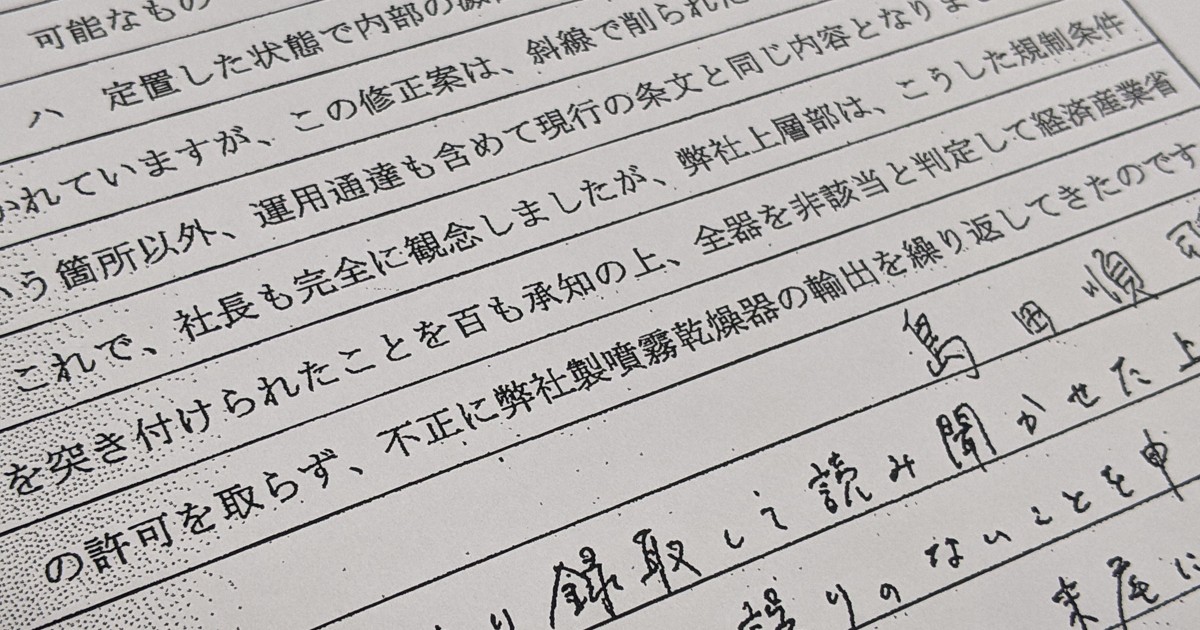 可能なもの
ハ 定置した状態で内部の滅
かれていますが、この修正案は、斜線で削られた
いう箇所以外、運用通達も含めて現行の条文と同じ内容となりま
これで、社長も完全に観念しましたが、弊社上層部は、こうした規制条件
を突き付けられたことを百も承知の上、全器を非該当と判定して経済産業省
の許可を取らず、不正に弊社製噴霧乾燥器の輸出を繰り返してきたのです
島田順司
り録取して読み聞かせた上
誤りのないことを申
末尾に